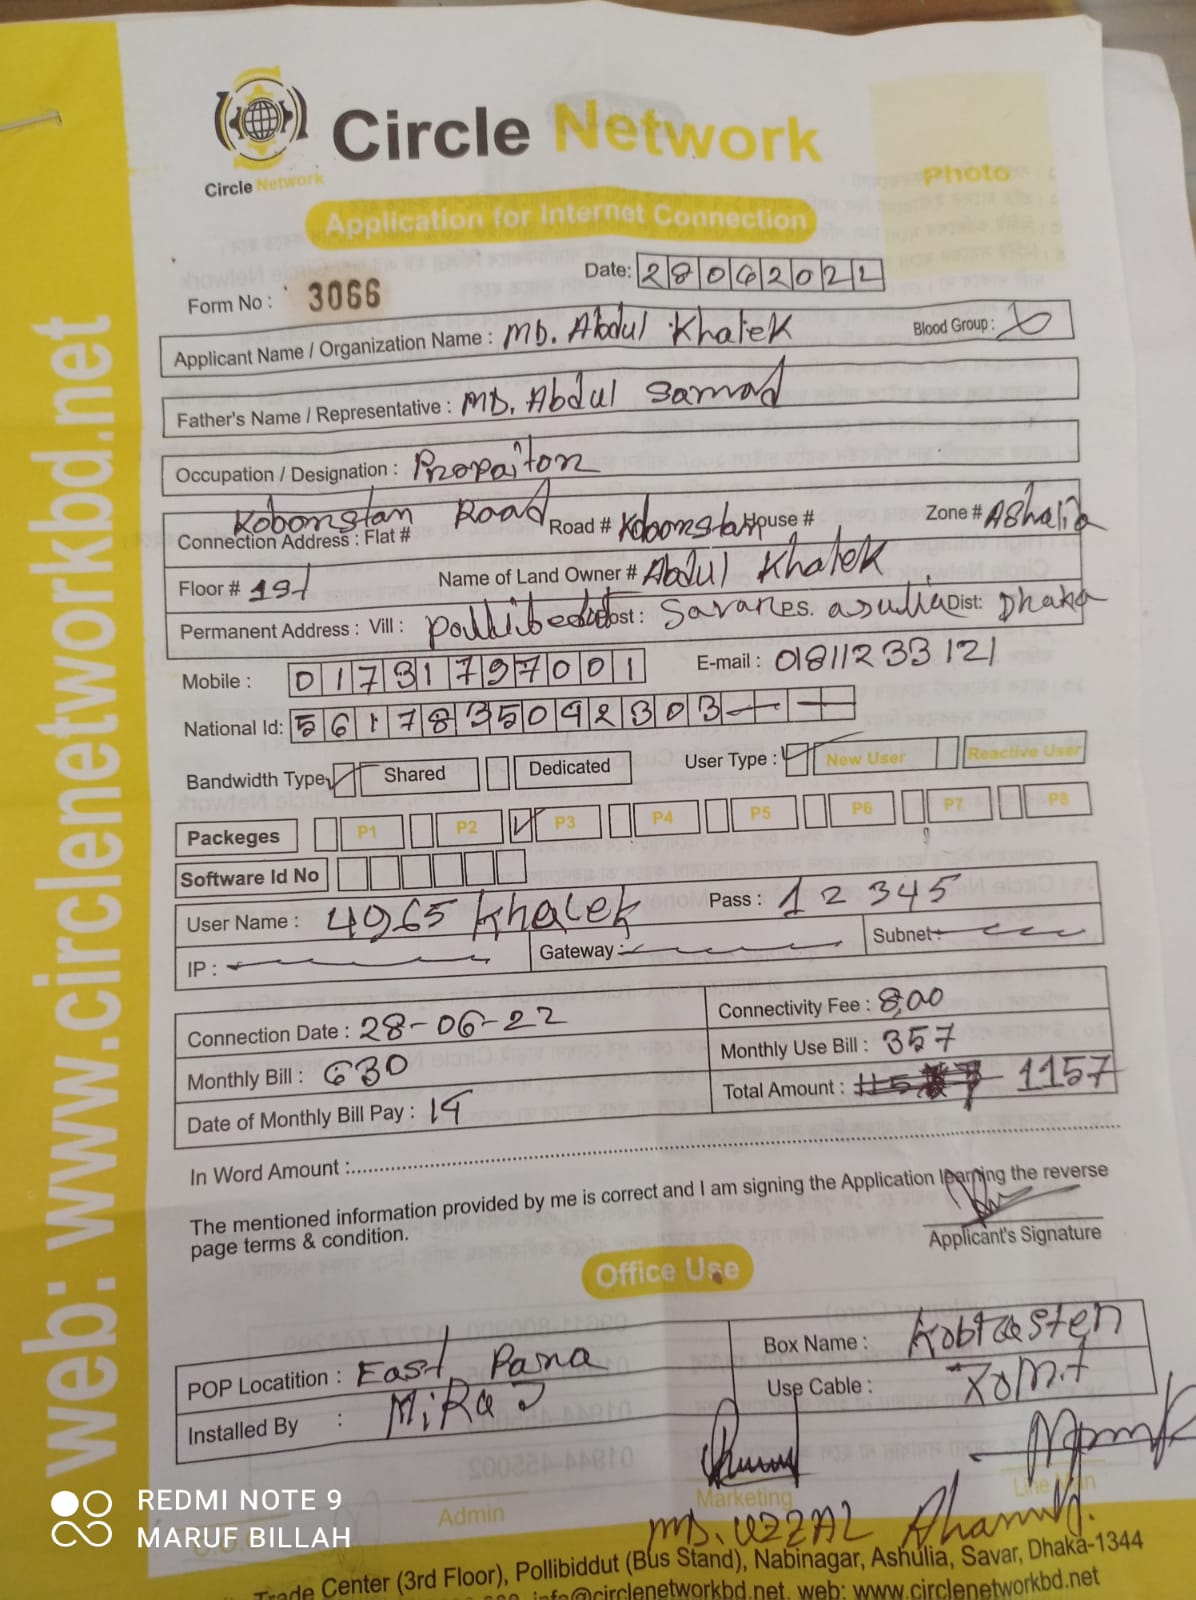 Circle Network
Circle Network
Photo
Application for Internet Connection
Date: 28062022
Form No : 3066
Applicant Name / Organization Name : MD. Abdul Khalek Blood Group :
Father's Name / Representative : MD. Abdul Samad
Occupation / Designation : Propaitor
Koborstan Road
Connection Address : Flat # Road # Koborstan House # Zone # AShalia
Floor # 1st Name of Land Owner # Abdul Khalek
Permanent Address : Vill : Post : Savar P.S. asulia Dist: Dhaka
Mobile : 01731797001 E-mail : 01811233121
National Id: 5617835092303
Bandwidth Type Shared Dedicated User Type : New User Reactive User
Packeges P1 P2 P3 P4 P5 P6 P7 P8
Software Id No
User Name : 4965 Khalek Pass : 12345
IP : Gateway : Subnet
Connection Date : 28-06-22 Connectivity Fee : 800
Monthly Bill : 630 Monthly Use Bill : 357
Date of Monthly Bill Pay : Total Amount : 1157
In Word Amount :
The mentioned information provided by me is correct and I am signing the Application learning the reverse
page terms & condition.
Applicant's Signature
Office Use
POP Locatition : East Para Box Name :
Installed By : MiRaJ Use Cable :
Admin Marketing Line Man
MD. UZZAL
Trade Center (3rd Floor), Pollibiddut (Bus Stand), Nabinagar, Ashulia, Savar, Dhaka-1344
info@circlenetworkbd.net, web: www.circlenetworkbd.net
web: www.circlenetworkbd.net
REDMI NOTE 9
MARUF BILLAH